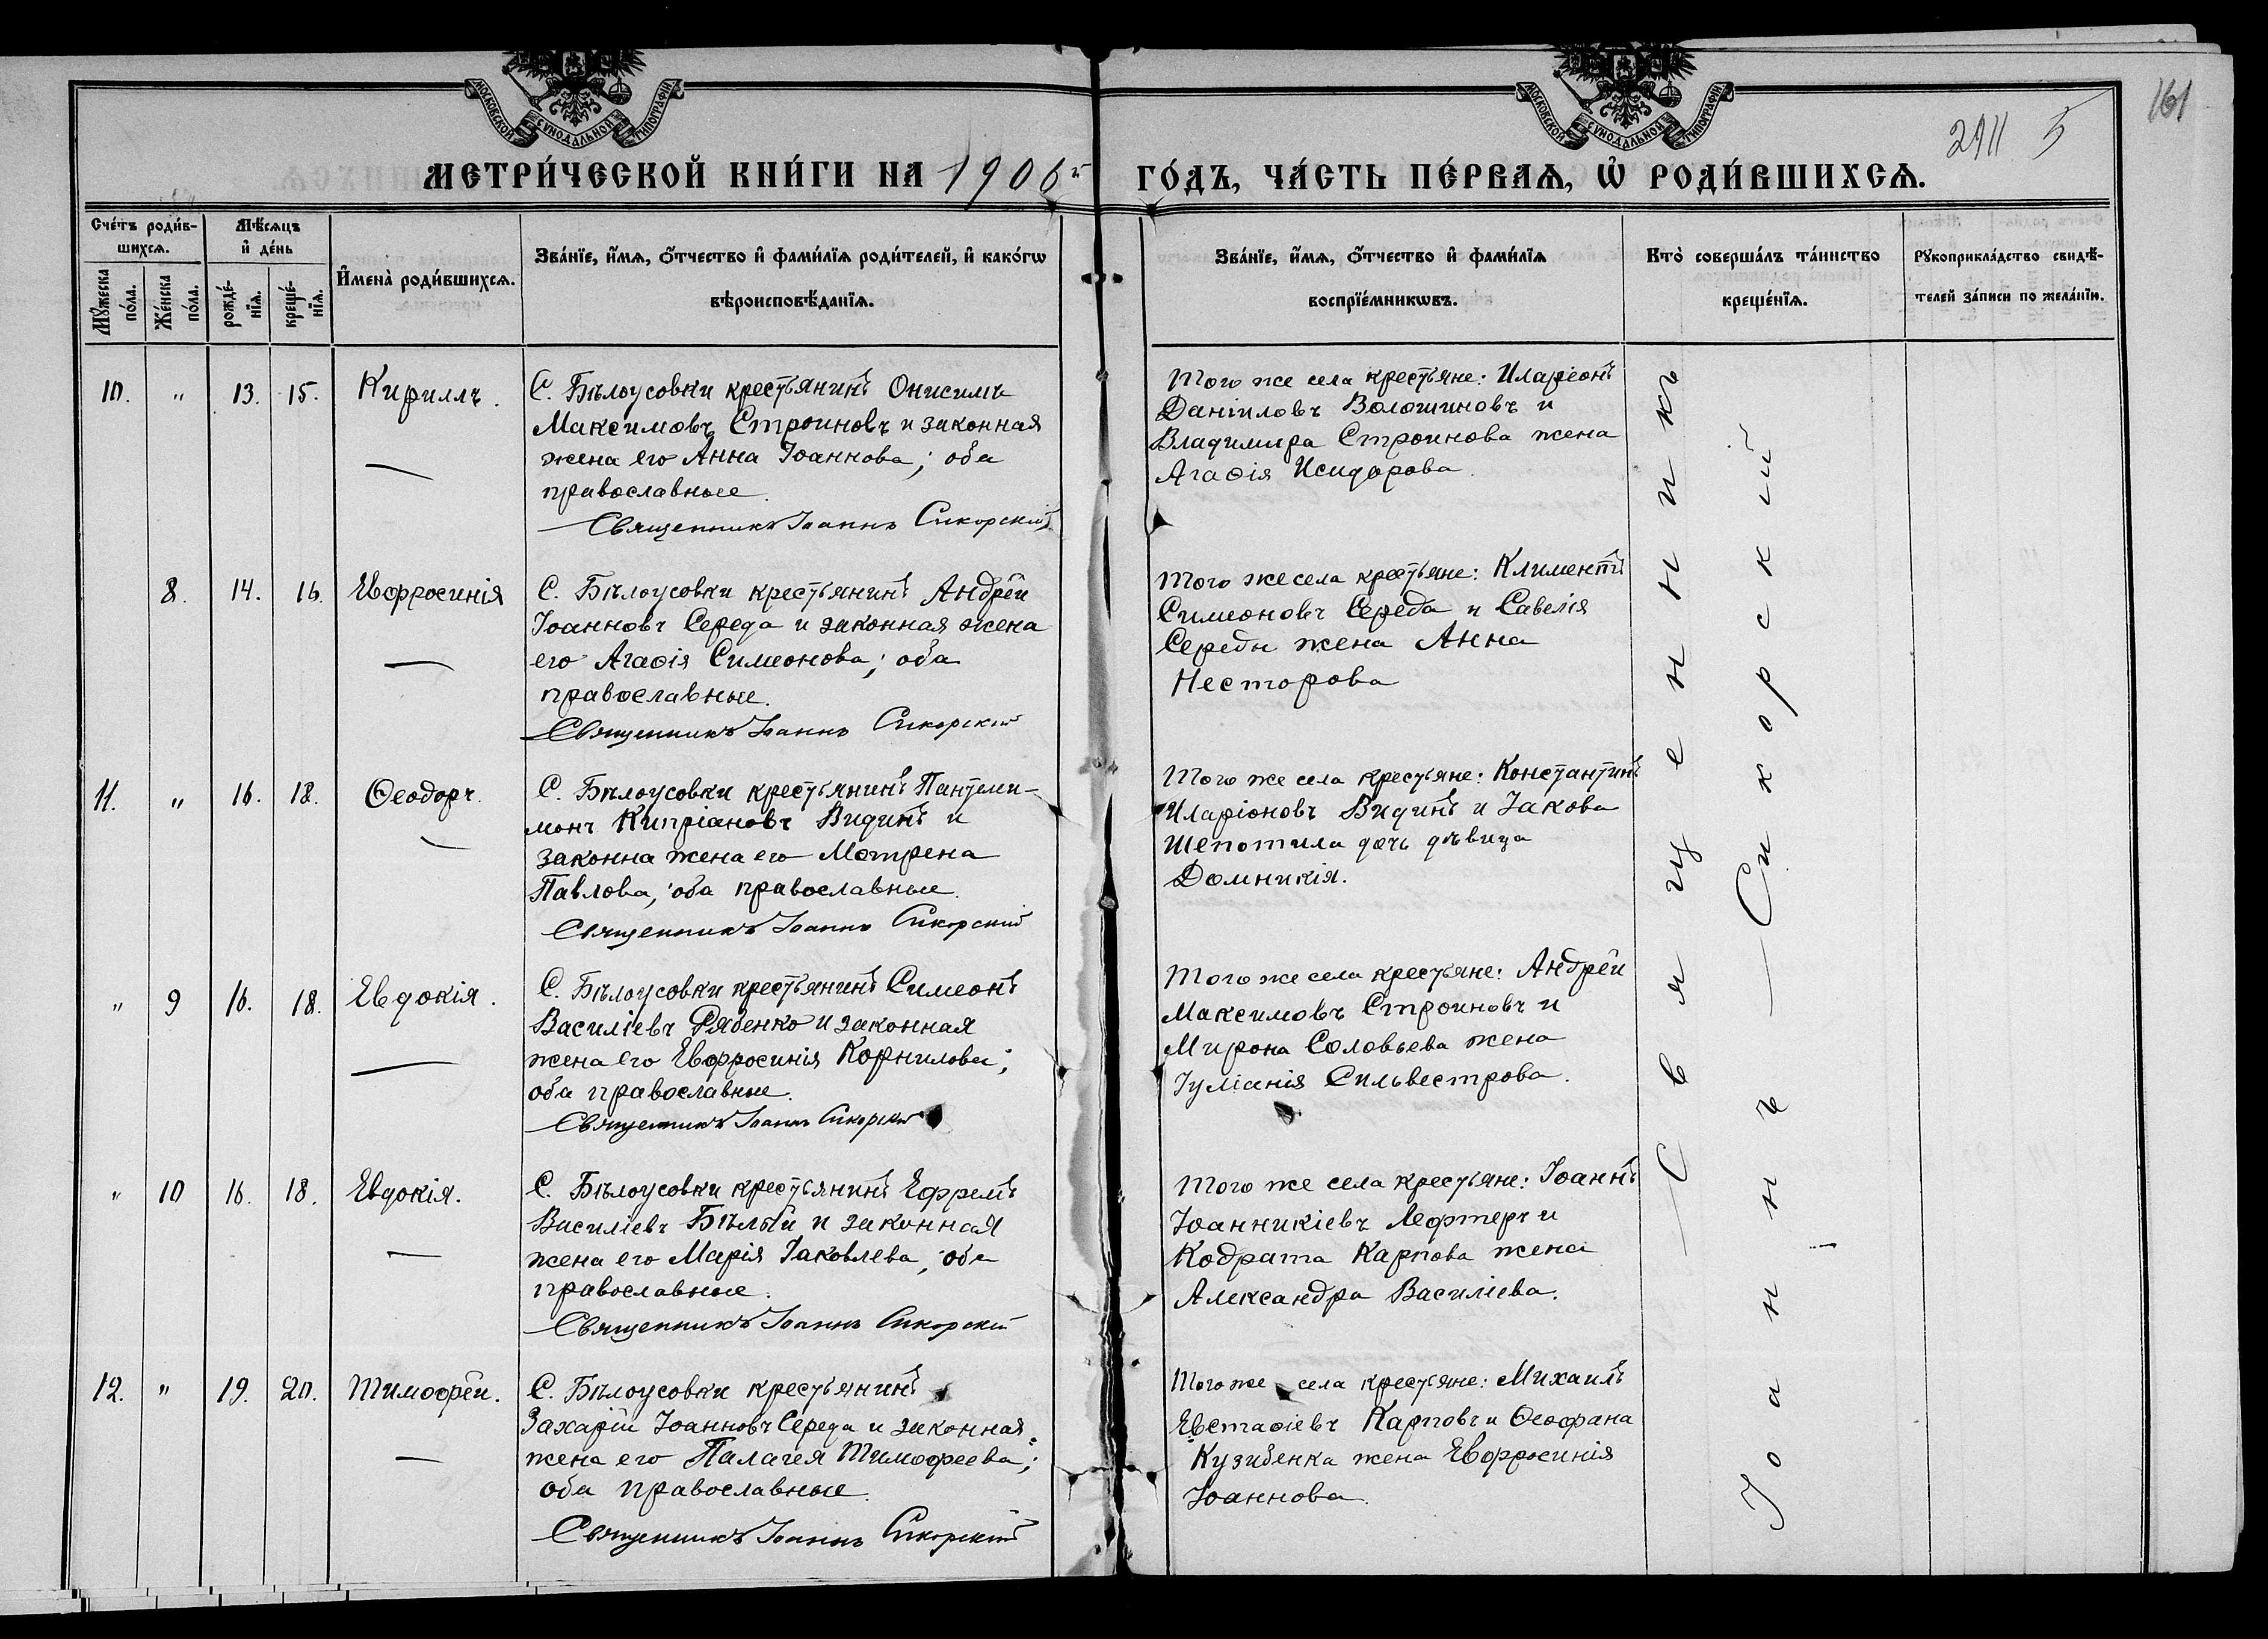 161
2911 5
МОСКОВСКОЙ СѴНОДАЛЬНОЙ ТИПОГРАФІИ
МОСКОВСКОЙ СѴНОДАЛЬНОЙ ТИПОГРАФІИ
МЕТРИ́ЧЕСКОЙ КНИ́ГИ НА 1906й ГО́ДЪ, ЧА́СТЬ ПЕ́РВАѦ, Ѡ҆ РОДИ́ВШИХСѦ.
Сче́тъ роди́в-
шихсѧ.
Мꙋ́жеска по́ла.
Же́нска по́ла.
Мѣ́сѧцъ
и҆ де́нь
рожде́-
нїѧ.
креще́-
нїѧ.
И҆мена̀ роди́вшихсѧ.
Зва́нїе, и҆́мѧ, ѻ҆́тчество и҆ фами́лїѧ роди́телей, и҆ како́гѡ
вѣроисповѣ́данїѧ.
Зва́нїе, и҆́мѧ, ѻ҆́тчество и҆ фами́лїѧ
воспрїе́мникѡвъ.
Кто̀ соверша́лъ та́инство
креще́нїѧ.
Рꙋкоприкла́дство свидѣ́-
телей за́писи по жела́нїю.
10. " 13. 15. Кириллъ.
С. Бѣлоусовки крестьянинъ Онисимъ
Максимовъ Строиновъ и законная
жена его Анна Іоаннова; оба
православные.
Священникъ Іоаннъ Сикорскій
Того же села крестьяне: Иларіонъ
Даніиловъ Волошиновъ и
Владимира Строинова жена
Агаѳія Исидорова.
8. 14. 16. Евфросинія
С. Бѣлоусовки крестьянинъ Андрей
Іоанновъ Середа и законная жена
его Агаѳія Симеонова; оба
православные.
Священникъ Іоаннъ Сикорскій
Того же села крестьяне: Климентъ
Симеоновъ Середа и Савелія
Середы жена Анна
Несторова
11. " 16. 18. Ѳеодоръ.
С. Бѣлоусовки крестьянинъ Пантели-
монъ Кипріановъ Видинъ и
законна жена его Мотрена
Павлова; оба православные.
Священникъ Іоаннъ Сикорскій
Того же села крестьяне: Константинъ
Иларіоновъ Видинъ и Іакова
Шепотила дочь дѣвица
Домникія.
" 9 16. 18. Евдокія.
С. Бѣлоусовки крестьянинъ Симеонъ
Василіевъ Рябенко и законная
жена его Евфросинія Корнилова;
оба православные.
Священникъ Іоаннъ Сикорскій
Того же села крестьяне: Андрей
Максимовъ Строиновъ и
Мирона Соловьева жена
Іуліанія Сильвестрова.
" 10 16. 18. Евдокія.
С. Бѣлоусовки крестьянинъ Ефремъ
Василіевъ Бѣлый и законная
жена его Марія Іаковлева; оба
православные.
Священникъ Іоаннъ Сикорскій
Того же села крестьяне: Іоаннъ
Іоанникіевъ Лефтеръ и
Кодрата Карпова жена
Александра Василіева.
12. " 19. 20. Тимофей.
С. Бѣлоусовки крестьянинъ
Захарій Іоанновъ Середа и законная
жена его Палагея Тимофеева;
оба православные.
Священникъ Іоаннъ Сикорскій
Того же села крестьяне: Михаилъ
Евстаѳіевъ Карповъ и Ѳеофана
Кузибенка жена Евфросинія
Іоаннова.
Священникъ
Іоаннъ Сикорскій